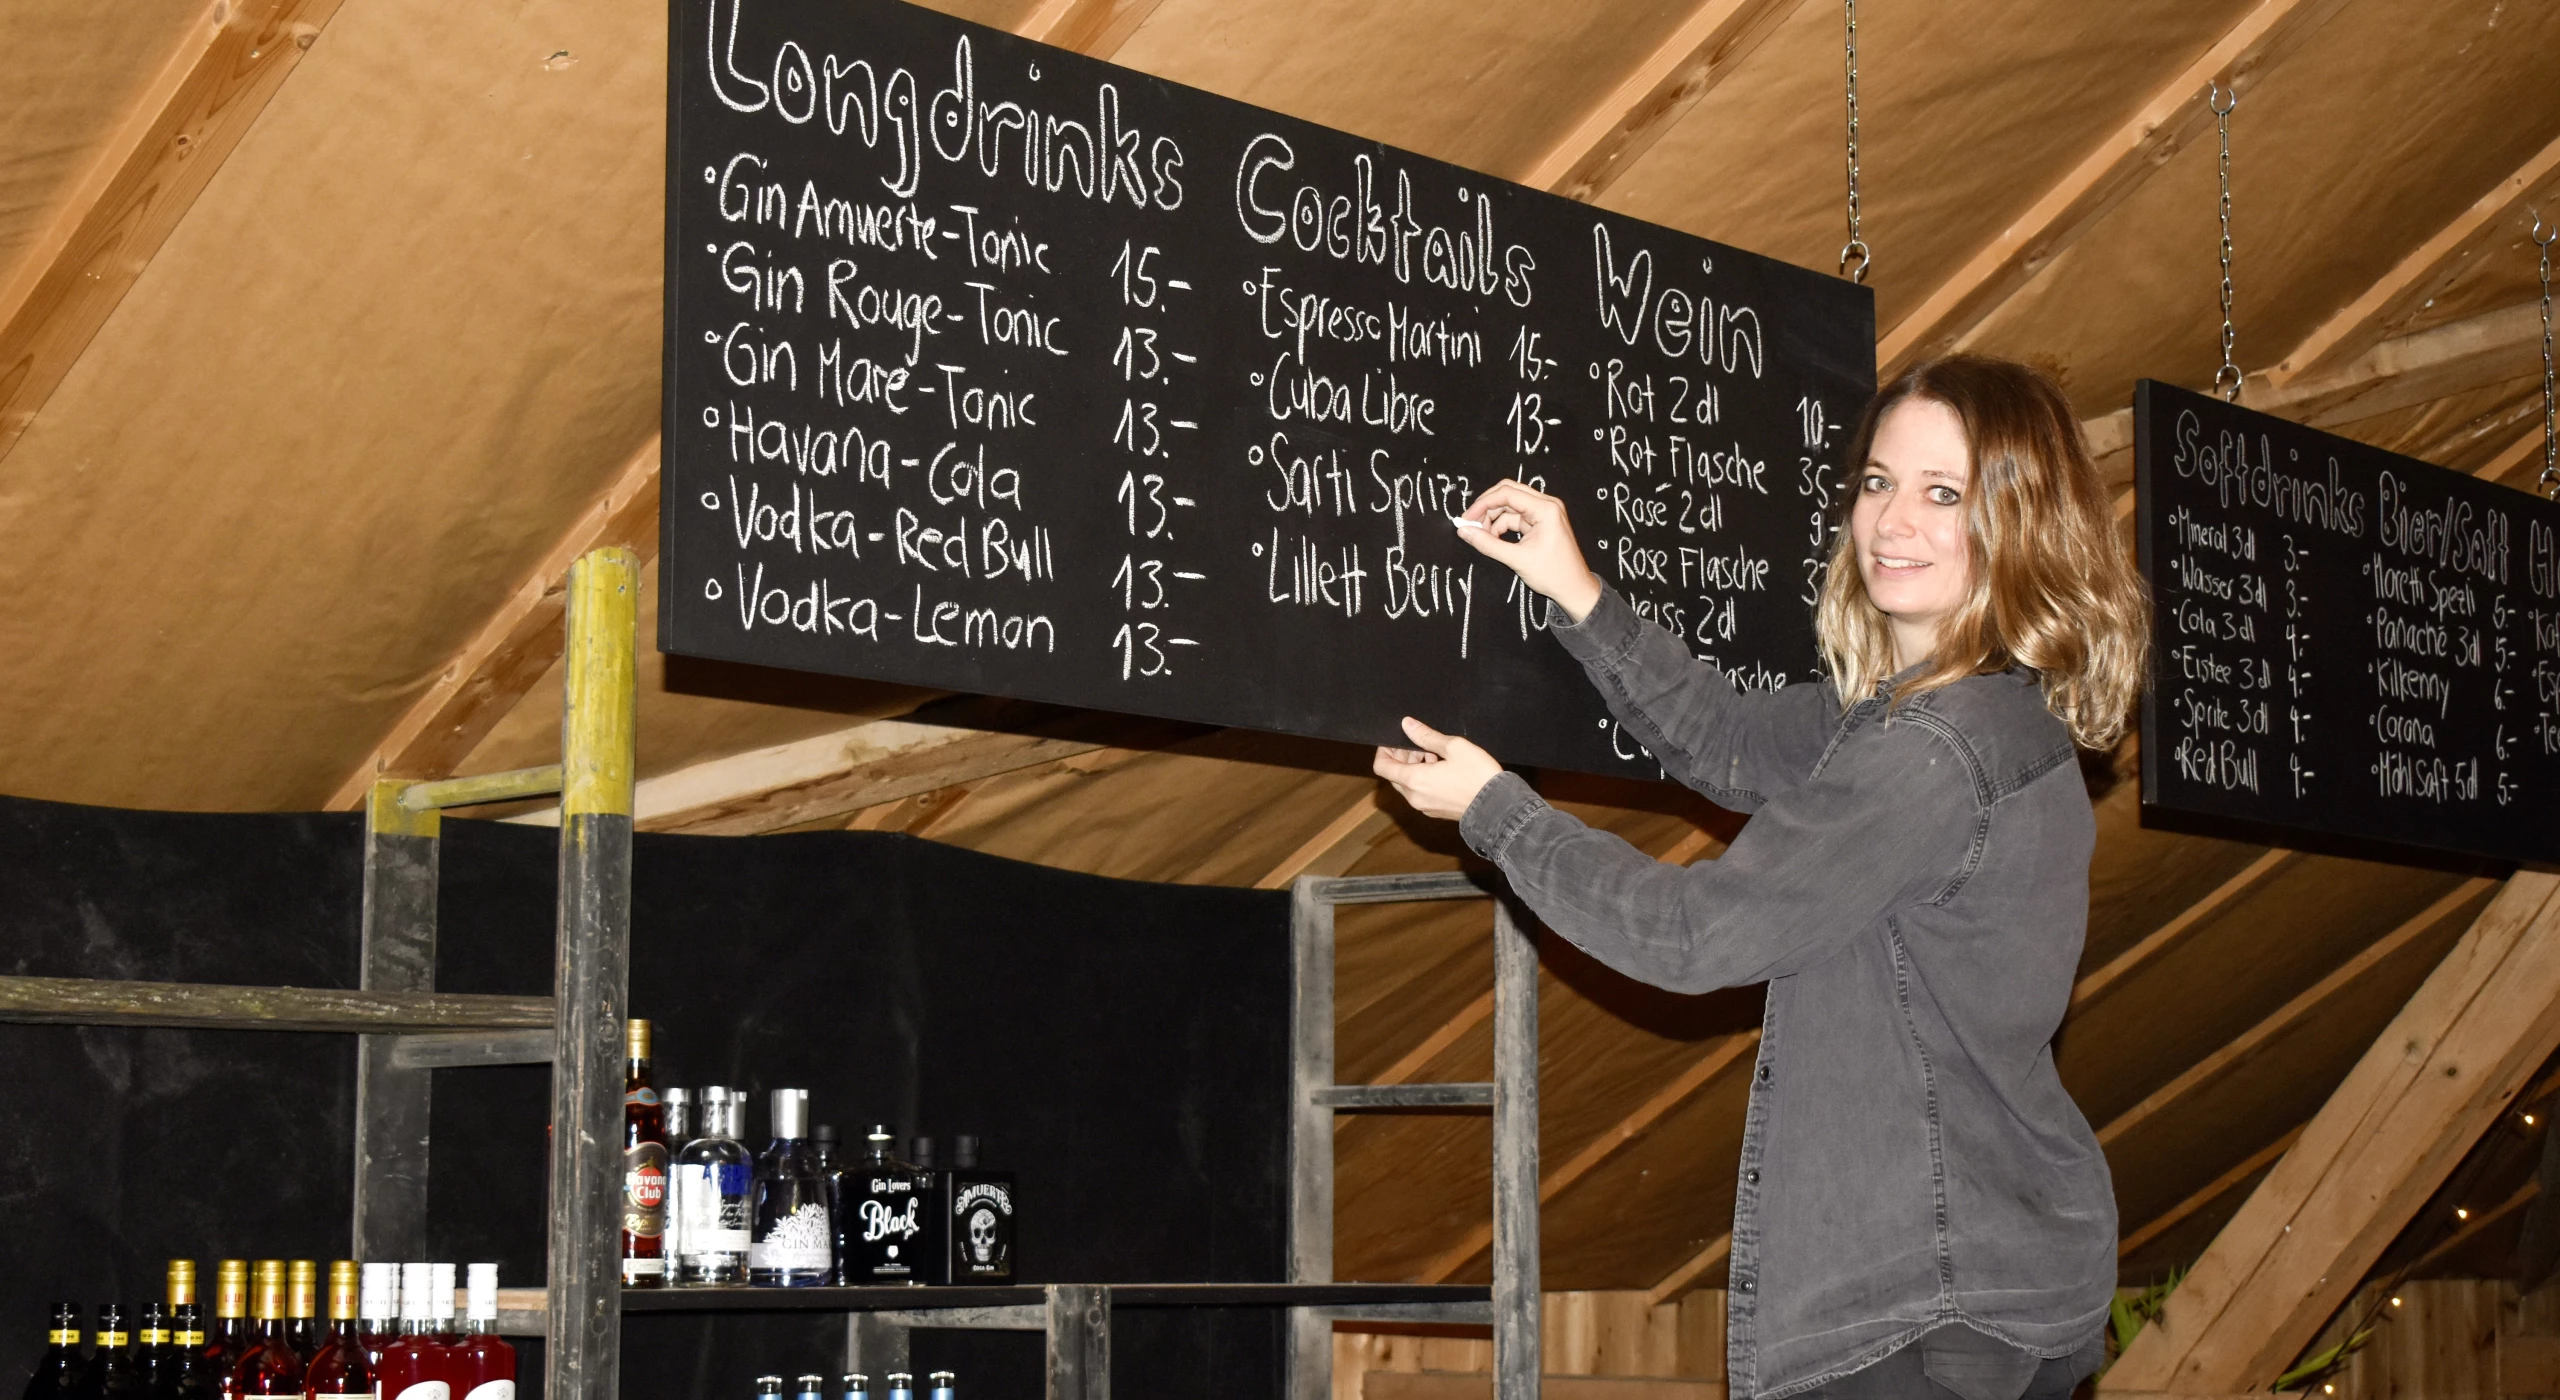 Longdrinks
°Gin Amuerte-Tonic 15.-
°Gin Rouge-Tonic 13.-
°Gin Mare-Tonic 13.-
°Havana-Cola 13.-
°Vodka-Red Bull 13.-
°Vodka-Lemon 13.-
Cocktails
°Espresso Martini 15.-
°Cuba Libre 13.-
°Sarti Spirzz
°Lillett Berry 10
Wein
°Rot 2dl 10.-
°Rot Flasche 35.-
°Rosé 2dl 9.-
°Rosé Flasche
2dl
Softdrinks
°Mineral 3dl 3.-
°Wasser 3dl 3.-
°Cola 3dl 4.-
°Eistee 3dl 4.-
°Sprite 3dl 4.-
°Red Bull 4.-
Bier/Saft
°Moretti Spezli 5.-
°Panaché 3dl 5.-
°Kilkenny 6.-
°Corona 6.-
°Möhl Saft 5dl 5.-
Havana
Club
GIN MA
Gin Lovers
Black
AMUERTE
COCA GIN